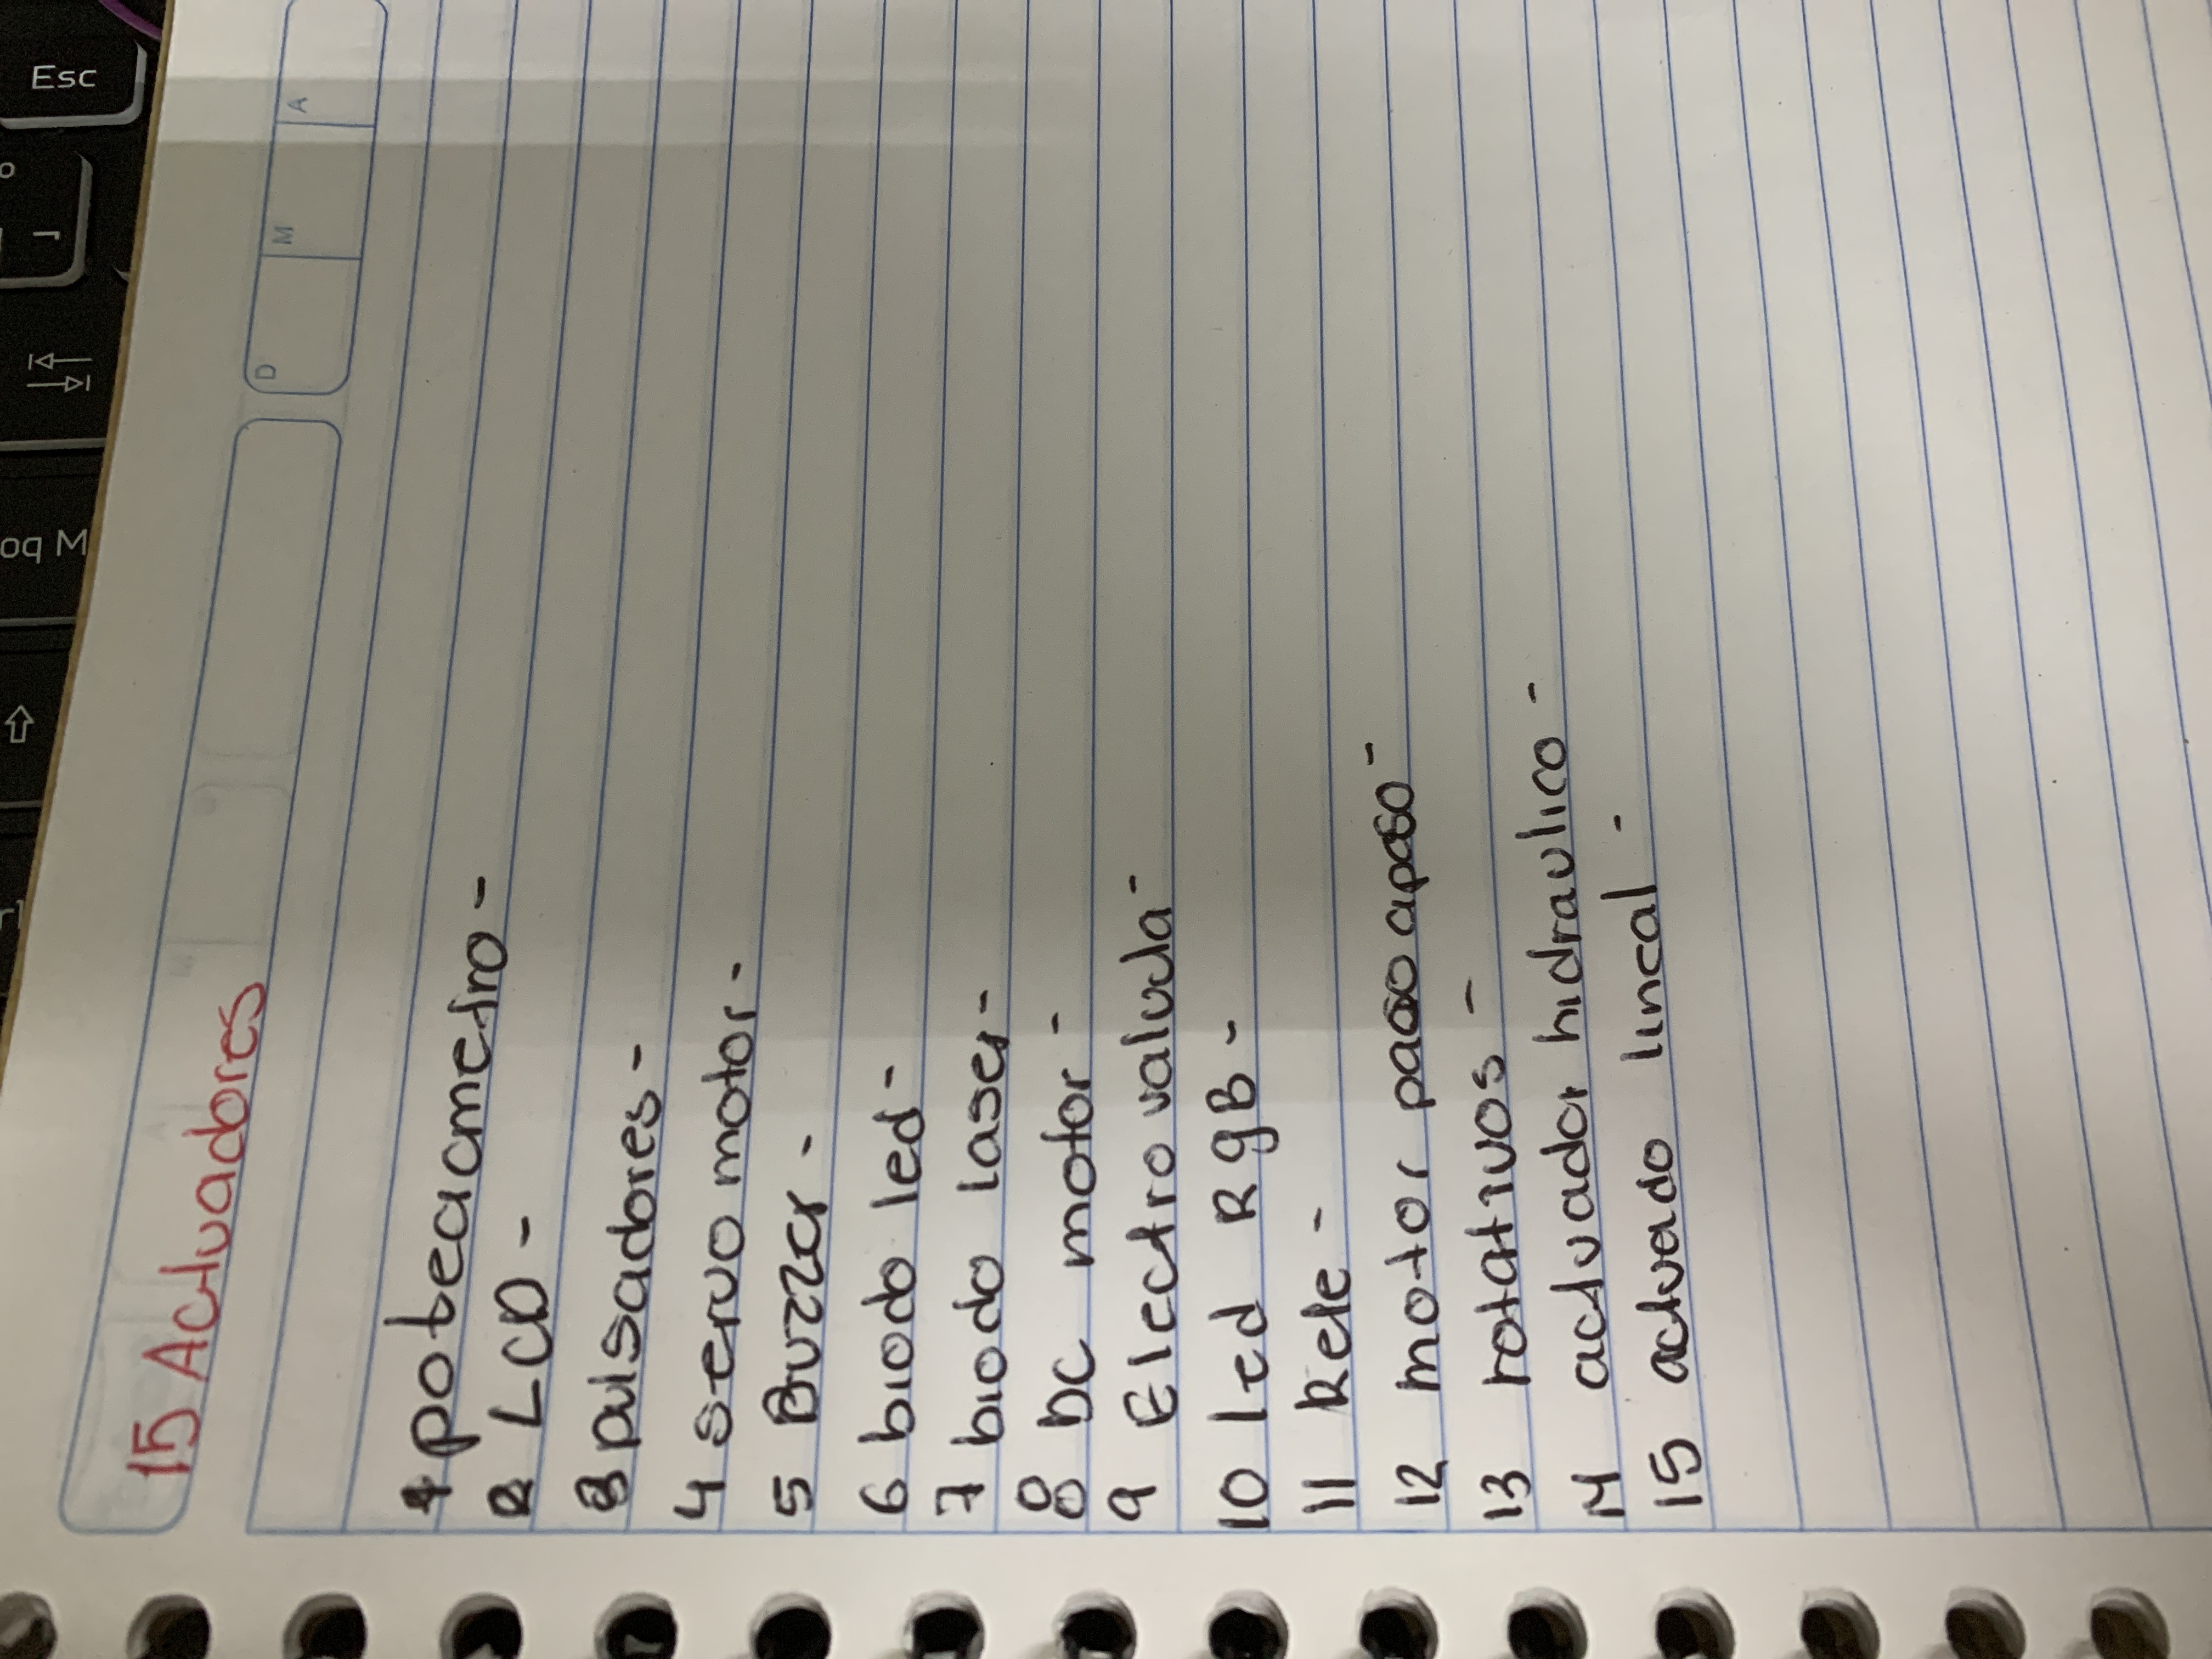 15 Actuadores
D M A
1 poteacmetro -
2 LCD -
3 pulsadores -
4 servo motor -
5 Buzzer -
6 biodo led -
7 biodo laser -
8 DC motor -
9 Electro valvula -
10 led RgB -
11 Rele -
12 motor paso apaso -
13 rotativos -
14 actuador hidraulico -
15 actuado lineal -
Esc